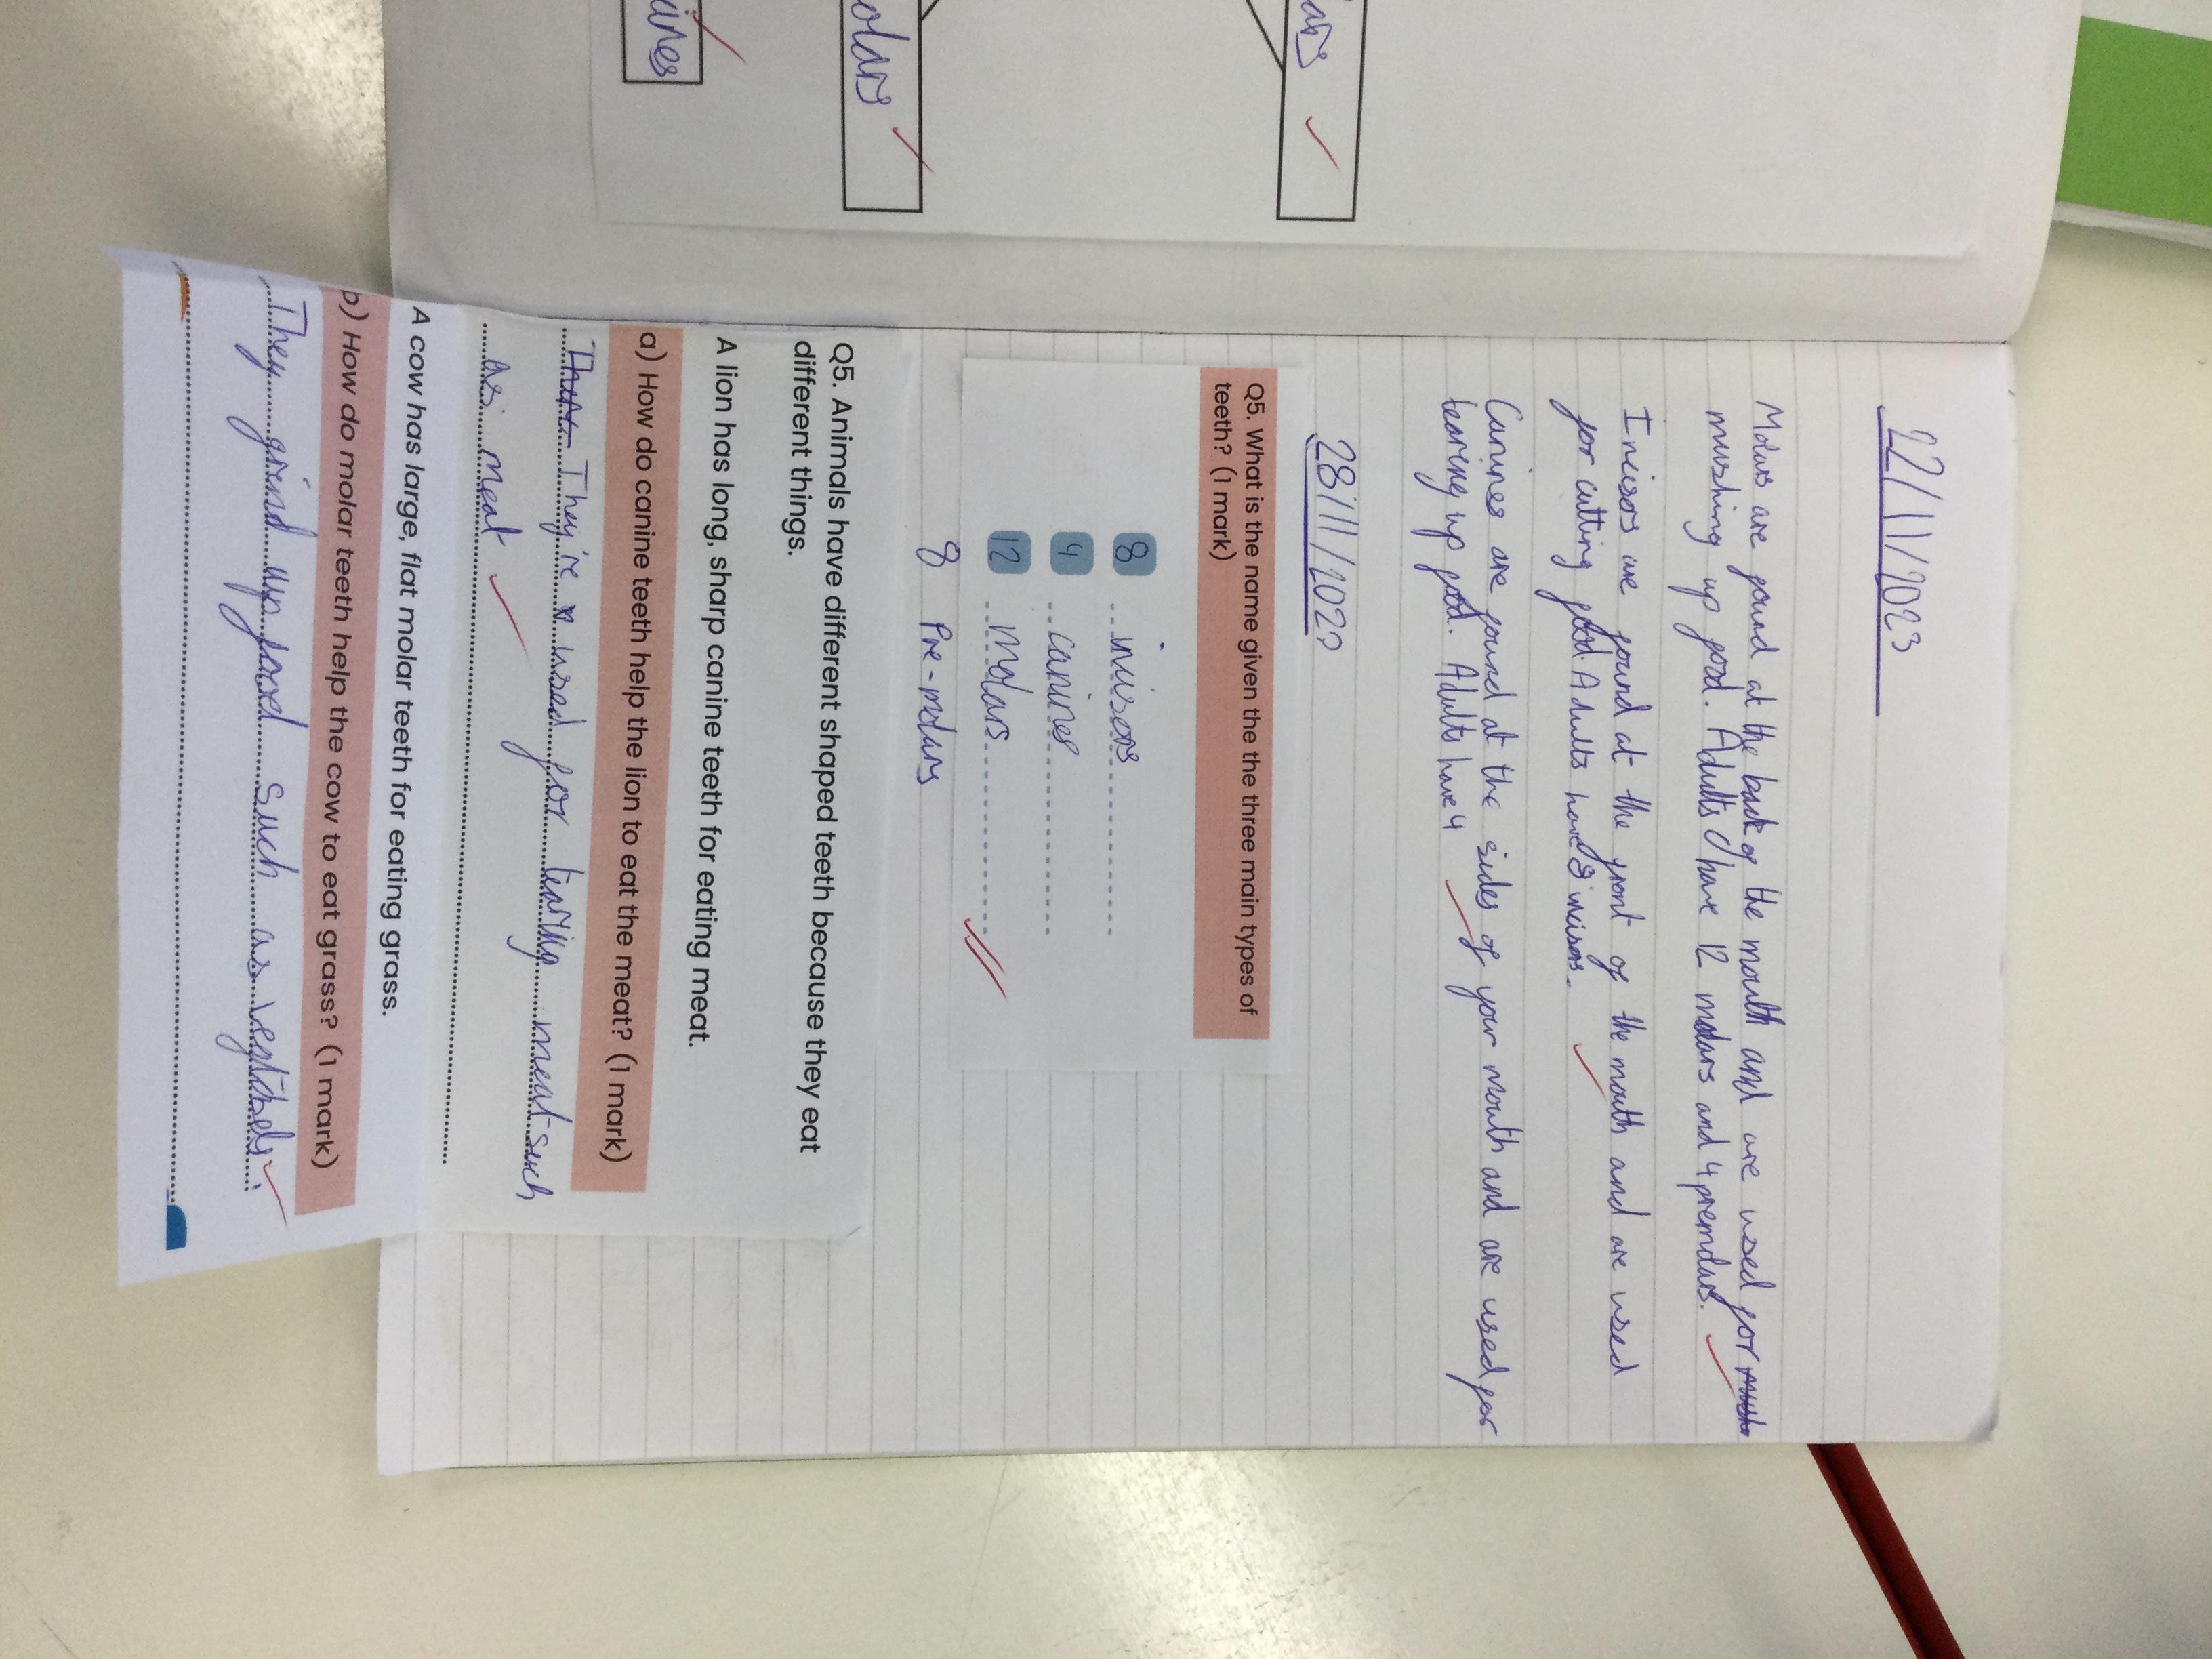 ines
olars
ars
22/11/2023
Molars are found at the back of the mouth and are used for
mushing up food. Adults have 12 molars and 4 premolars.
Incisors are found at the front of the mouth and are used
for cutting food. Adults have 8 incisors.
Canines are found at the sides of your mouth and are used for
tearing up food. Adults have 4
28/11/202?
Q5. What is the name given the the three main types of
teeth? (1 mark)
8 incisors
4 canines
12 molars
8 Pre-molars
Q5. Animals have different shaped teeth because they eat
different things.
A lion has long, sharp canine teeth for eating meat.
a) How do canine teeth help the lion to eat the meat? (1 mark)
They're used for tearing meat such
as meat
A cow has large, flat molar teeth for eating grass.
b) How do molar teeth help the cow to eat grass? (1 mark)
They grind up food such as